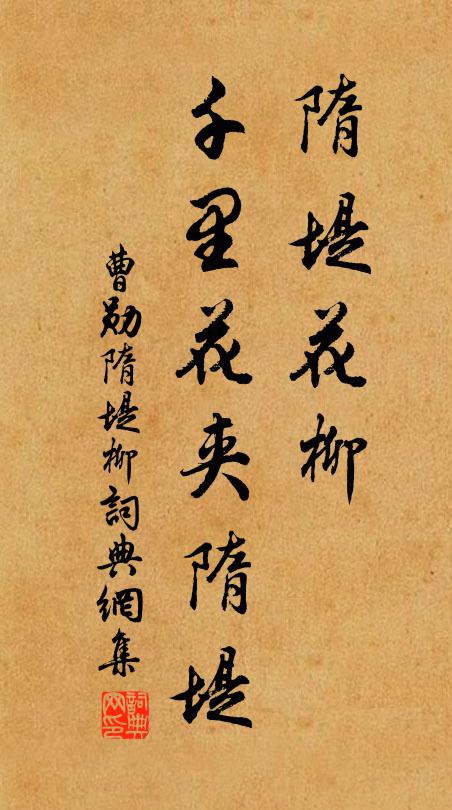 隋堤花柳
千里花夹隋堤
曹勛隋堤柳詞典網集
詞典网印